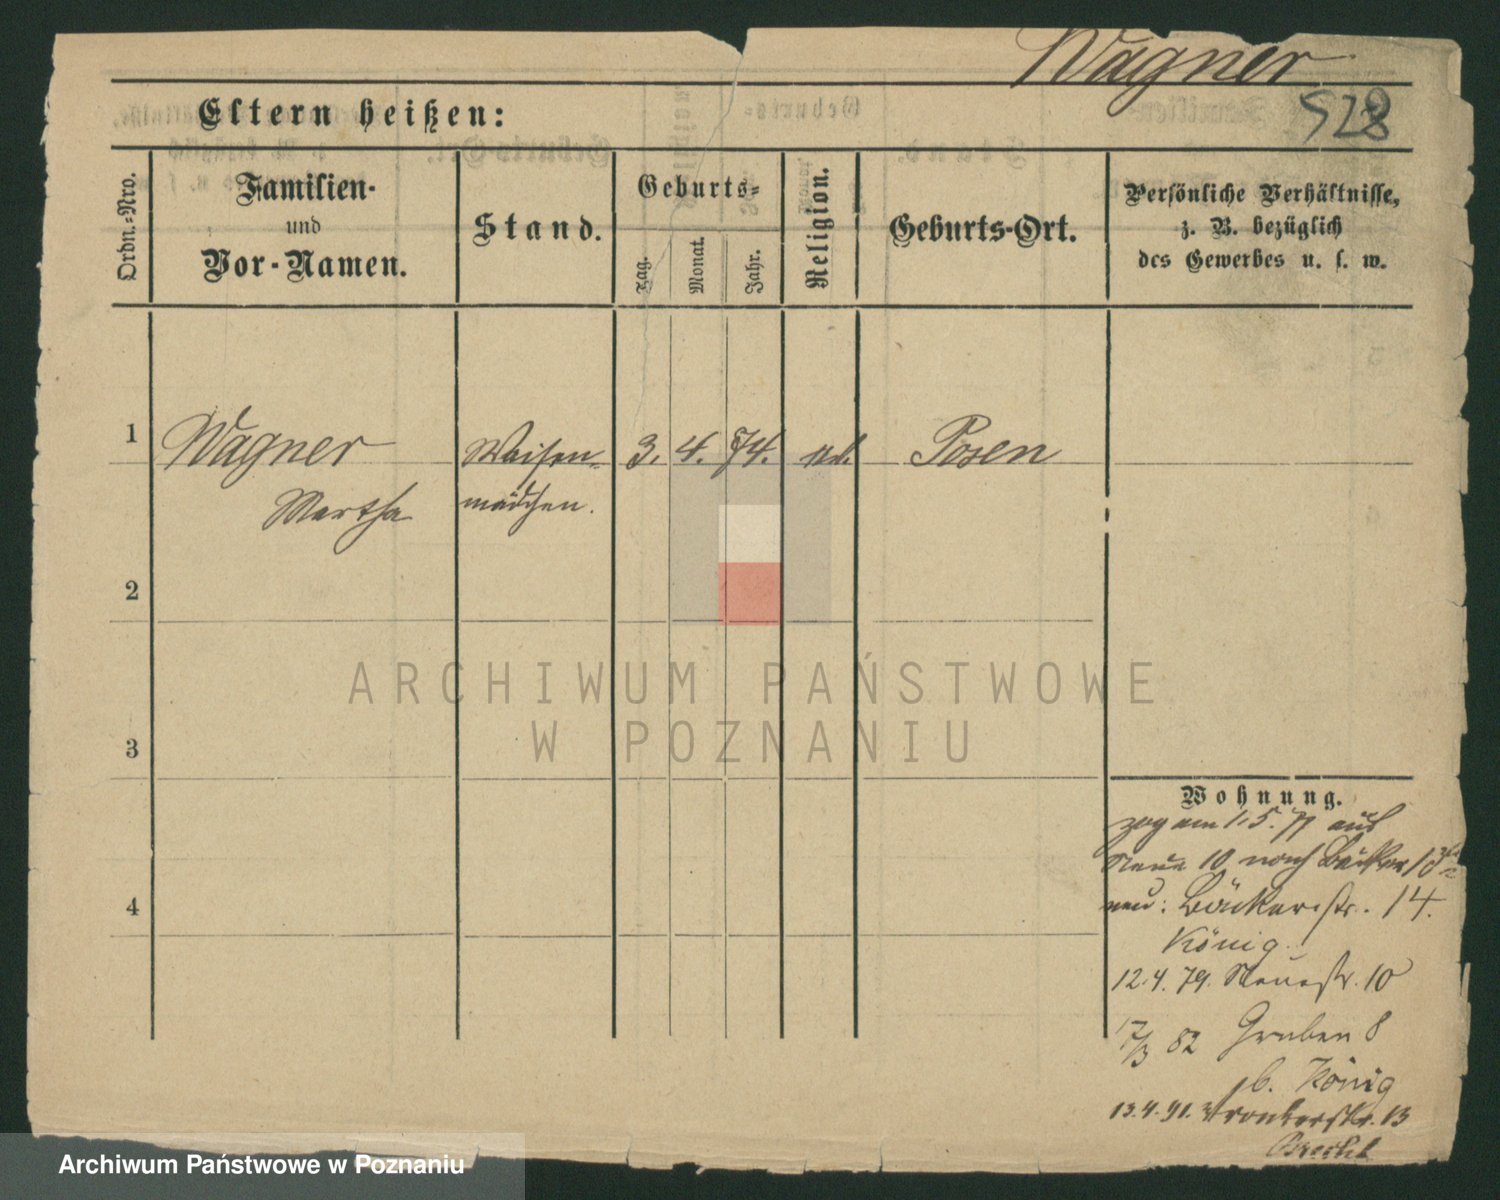 Wagner
528
Eltern heißen:
Ordn.-Nro.
Familien-
und
Vor-Namen.
Stand.
Geburts-
Tag.
Monat.
Jahr.
Religion.
Geburts-Ort.
Persönliche Verhältnisse,
z. B. bezüglich
des Gewerbes u. s. w.
1
Wagner
Martha
Waisen-
mädchen.
3. 4. 74.
Posen
2
3
4
ARCHIWUM PAŃSTWOWE
W POZNANIU
Wohnung.
zog am 1.5.77 aus
Neue 10 nach Bäcker 13
neu: Bäckerstr. 14.
König.
12.4.79. Neuestr. 10
17/3 82 Graben 8
b. König
13.4.91. Wronkerstr. 13
Archiwum Państwowe w Poznaniu